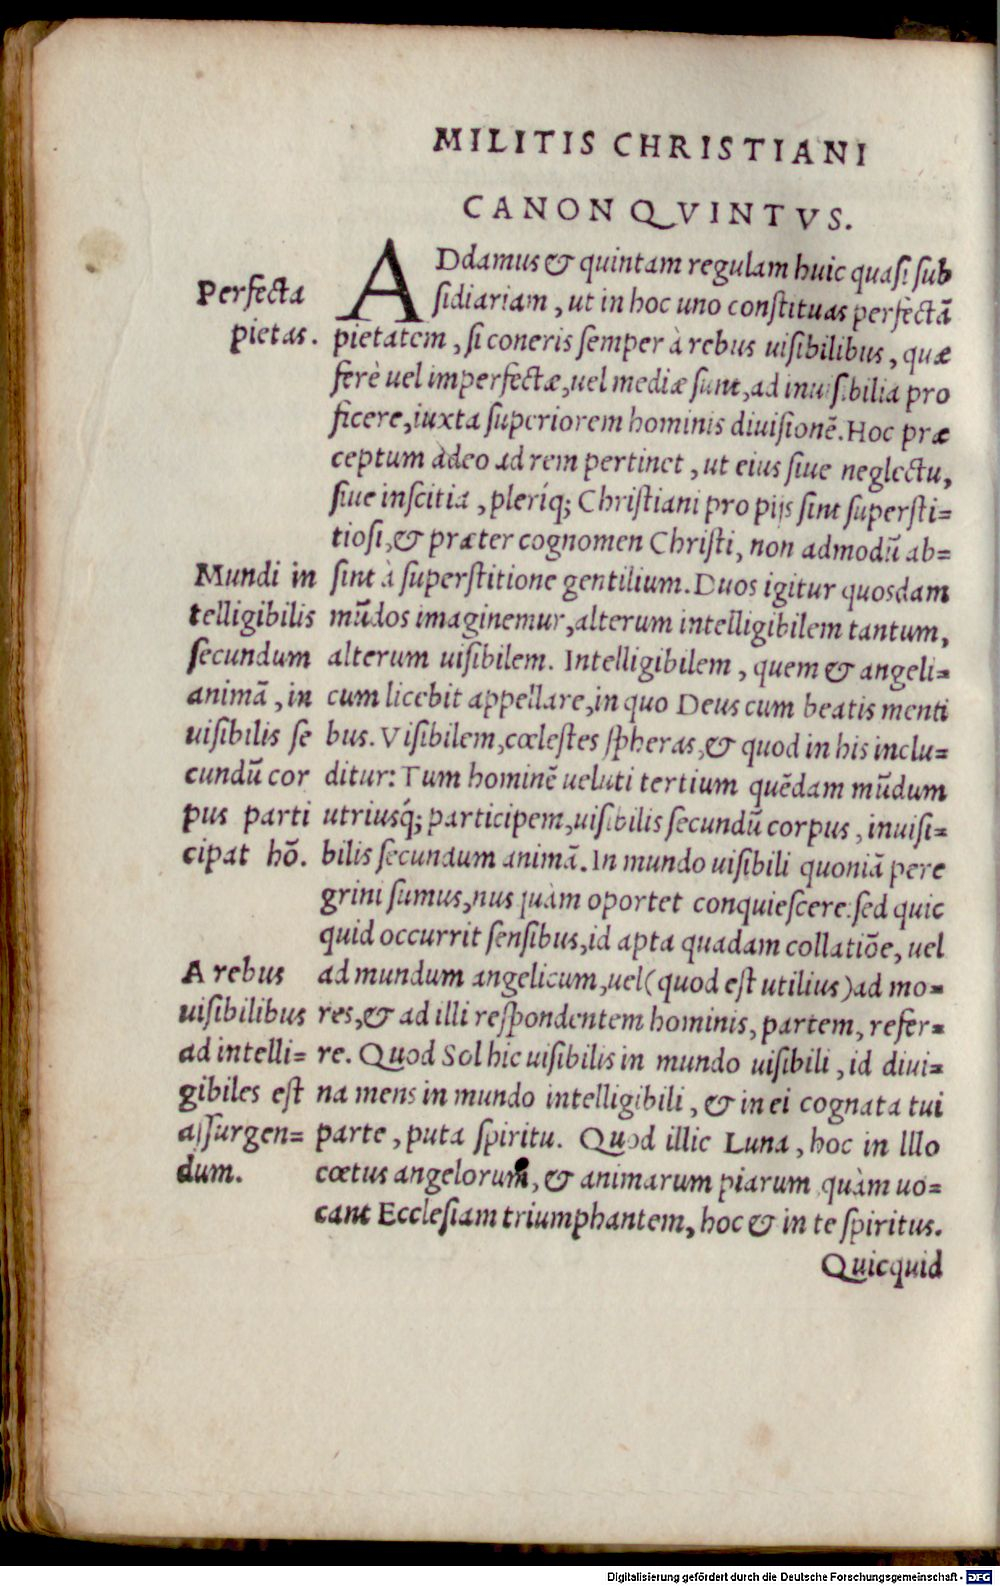 MILITIS CHRISTIANI
CANON QVINTVS.
Perfecta
pietas.
ADdamus & quintam regulam huic quasi sub
sidiariam, ut in hoc uno constituas perfectã
pietatem, si coneris semper à rebus uisibilibus, quæ
ferè uel imperfectæ, uel mediæ sunt, ad inuisibilia pro
ficere, iuxta superiorem hominis diuisionẽ. Hoc præ
ceptum adeo ad rem pertinet, ut eius siue neglectu,
siue inscitia, pleriq́; Christiani pro pijs sint supersti=
tiosi, & præter cognomen Christi, non admodũ ab=
sint à superstitione gentilium. Duos igitur quosdam
mũdos imaginemur, alterum intelligibilem tantum,
alterum uisibilem. Intelligibilem, quem & angeli=
cum licebit appellare, in quo Deus cum beatis menti
bus. Visibilem, cœlestes spheras, & quod in his inclu=
ditur: Tum hominẽ ueluti tertium quẽdam mũdum
utriusq́; participem, uisibilis secundũ corpus, inuisi=
bilis secundum animã. In mundo uisibili quoniã pere
grini sumus, nusquàm oportet conquiescere: sed quic
quid occurrit sensibus, id apta quadam collatiõe, uel
ad mundum angelicum, uel (quod est utilius) ad mo=
res, & ad illi respondentem hominis, partem, refer=
re. Quod Sol hic uisibilis in mundo uisibili, id diui=
na mens in mundo intelligibili, & in ei cognata tui
parte, puta spiritu. Quod illic Luna, hoc in Illo
cœtus angelorum, & animarum piarum, quàm uo=
cant Ecclesiam triumphantem, hoc & in te spiritus.
Quicquid
Mundi in
telligibilis
secundum
animã, in
uisibilis se
cundũ cor
pus parti
cipat hõ.
A rebus
uisibilibus
ad intelli=
gibiles est
assurgen=
dum.
Digitalisierung gefördert durch die Deutsche Forschungsgemeinschaft - DFG